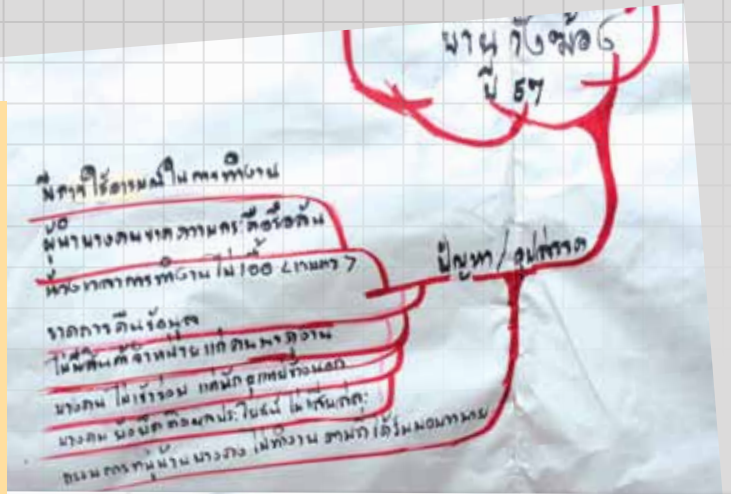 ปี 57
ปัญหา/อุปสรรค
มีการใช้อารมณ์ในการทำงาน
ผู้นำบางคนขาดความกระตือรือล้น
การทำงานไม่ 100
ขาดการคืนข้อมูล
ไม่มีสินค้าจำหน่ายแก่คนมาดูงาน
บางคนไม่เข้าร่วม แต่มักดูแลข้างนอก
บางคน ยังยึดติดผลประโยชน์ ไม่เสียสละ
กรรมการหมู่บ้านบางคน ไม่ทำงาน ตามที่ได้รับมอบหมาย